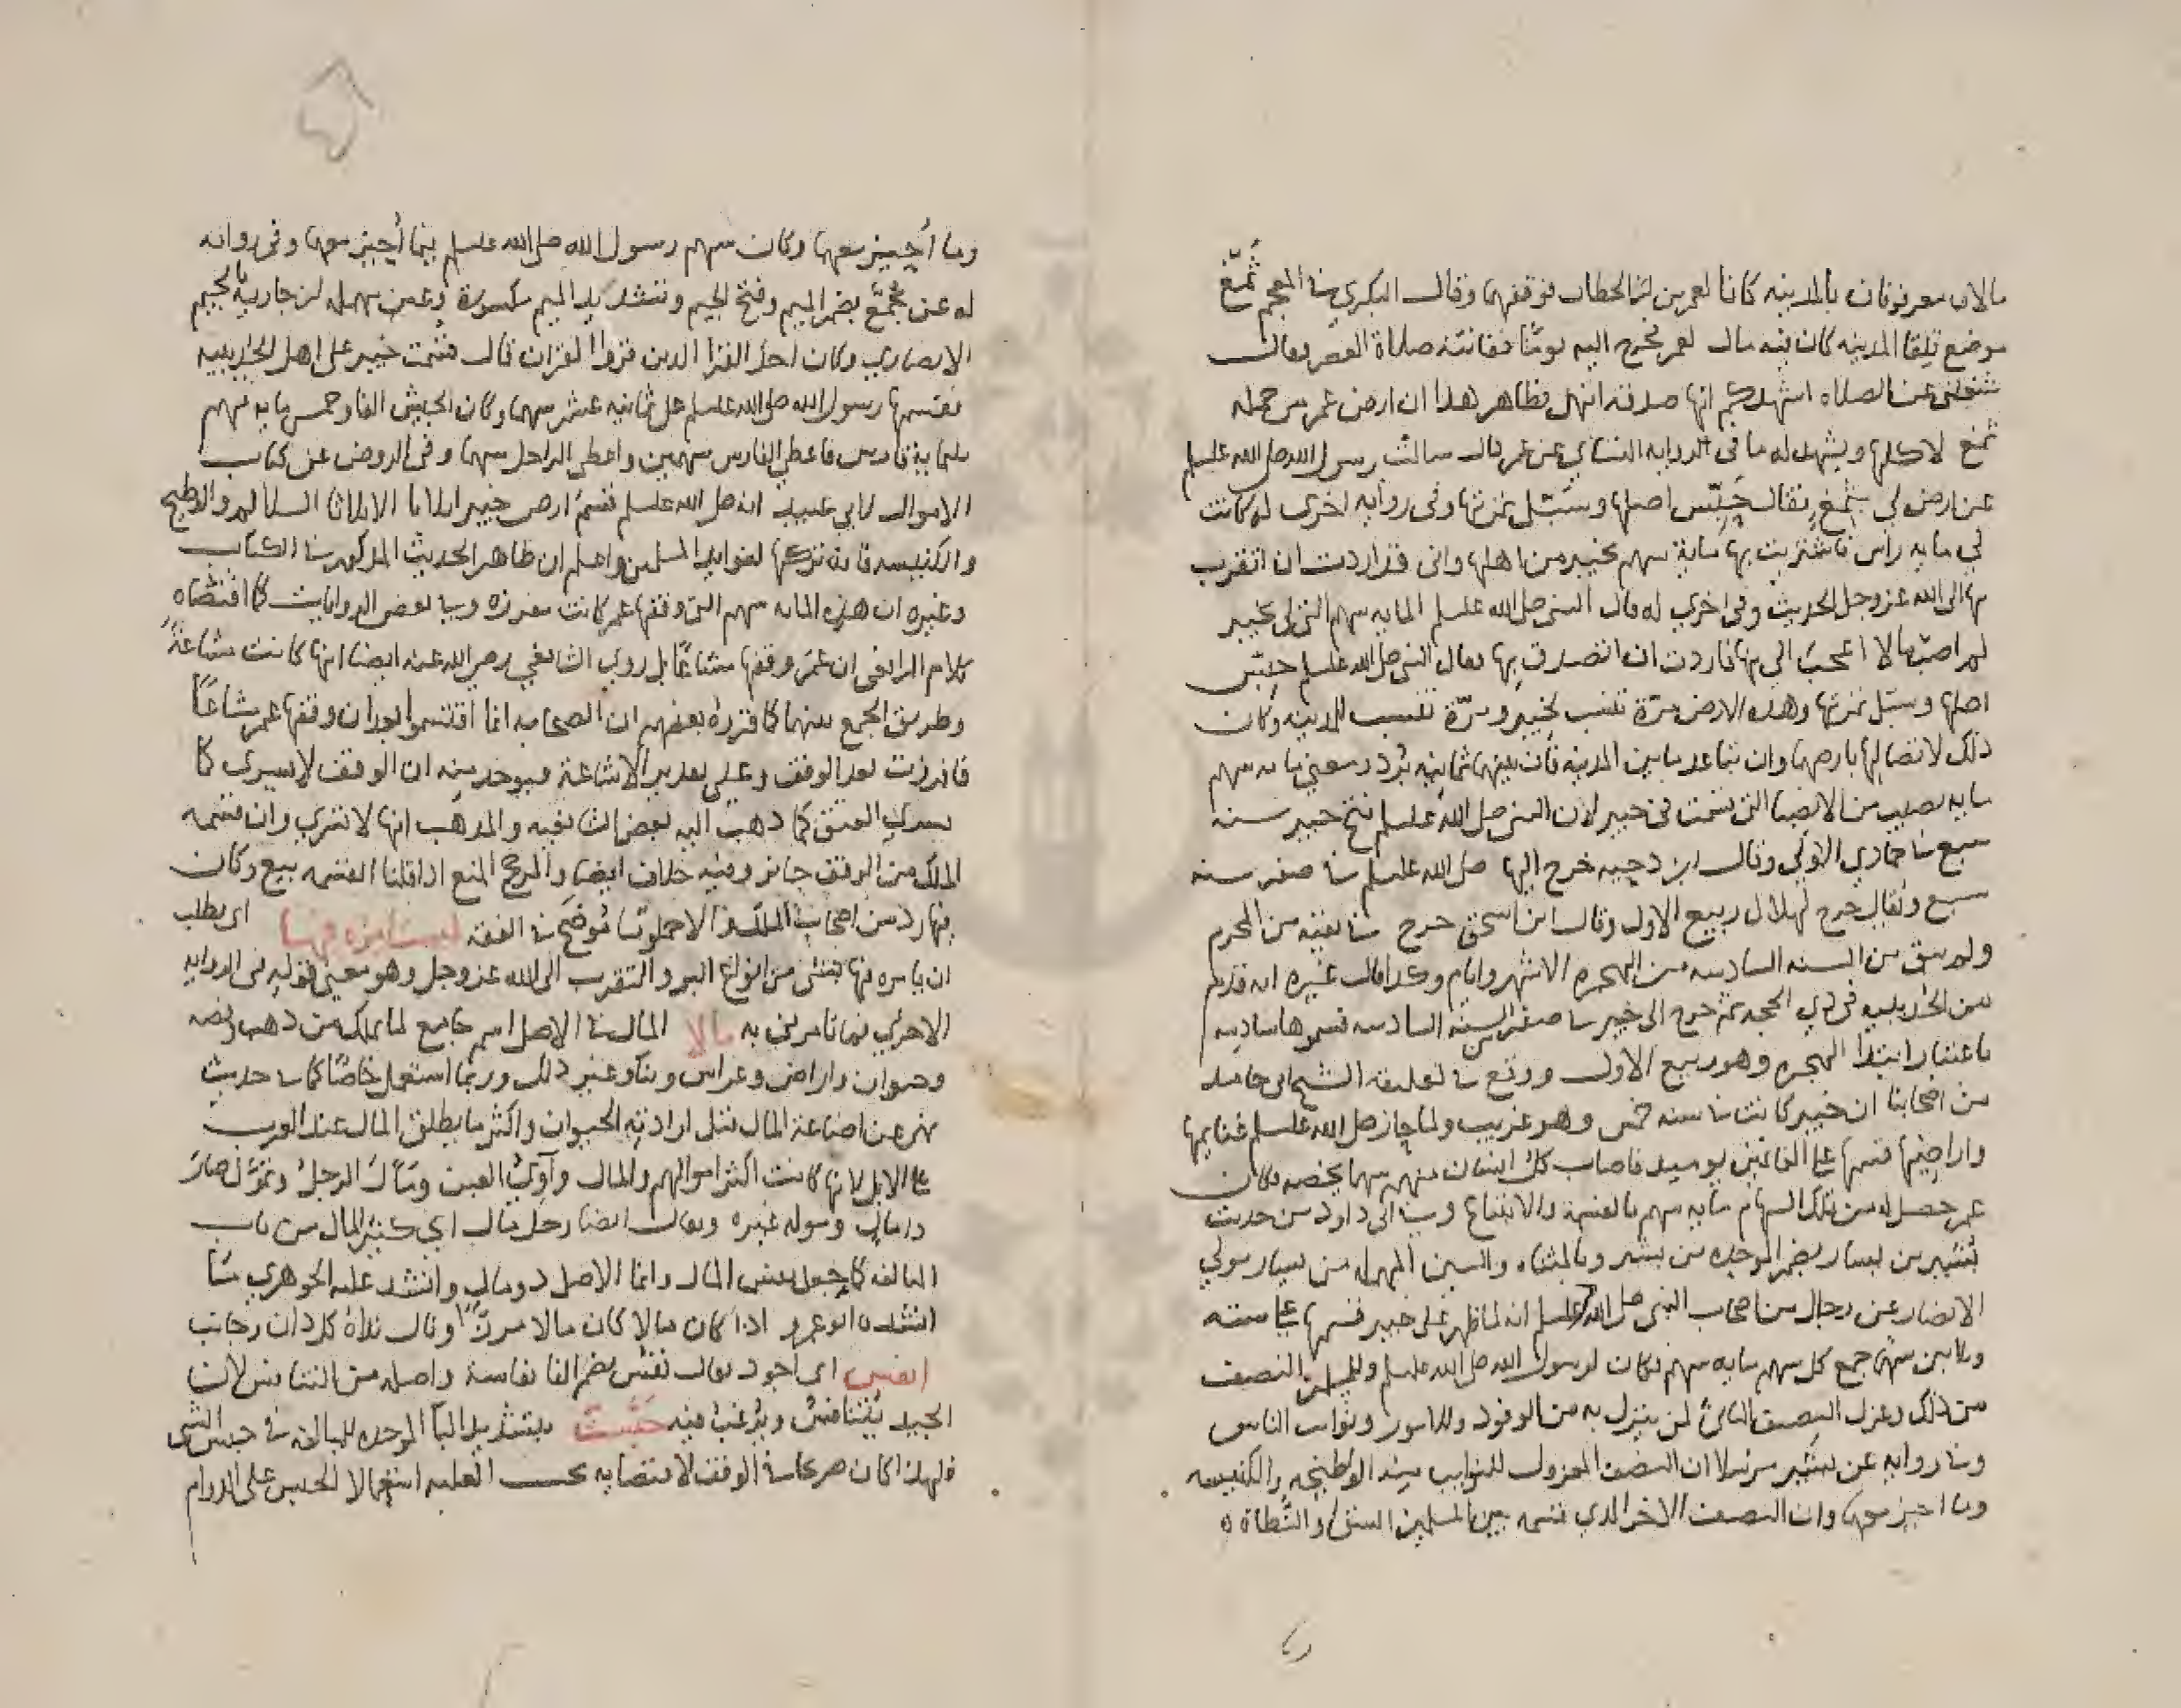 مالان معروفان بالمدينه كانا لعمر بن الخطاب فوقفهما وقال البكري في المعجم ثمغ
موضع تلقا المدينه كان فيه مال لعمر فخرج اليه يوما ففاتته صلاة العصر فقال
شغلتني عن الصلاه اشهدكم انها صدقه انتهى فظاهر هذا ان ارض عمر من جمله
ثمغ لا كلها ويشهد له ما في الروايه النسائي عن عمر قال سالت رسول الله صلى الله عليه وسلم
عن ارض لي بثمغ فقال حبّس اصلها وسبّل ثمرتها وفي روايه اخرى له كانت
لي مايه راس فاشتريت بها ماية سهم بخيبر من اهلها واني قد اردت ان اتقرب
بها الى الله عز وجل الحديث وفي اخري له قال للنبي صلى الله عليه وسلم المايه سهم التي لي بخيبر
لم اصب مالا اعجب الي منها فاردت ان اتصدق بها فقال النبي صلى الله عليه وسلم حبّس
اصلها وسبّل ثمرتها وهذه الارض مرّة تنسب لخيبر ومرّة تنسب للمدينه وكان
ذلك لاتصالها بارضهما وان تباعد ما بين المدينه فان بينهما ثمانيه برد ومعنى مايه سهم
مايه نصيب من الانصبا التي قسمت في خيبر لان النبي صلى الله عليه وسلم فتح خيبر سنه
سبع في جمادي الاولى وقال ابن دحيه خرج اليها صلى الله عليه وسلم في صفر سنه
سبع ويقال خرج لهلال ربيع الاول وقال ابن اسحق خرج في بقيه من المحرم
ولم يبق من السنه السادسه من الهجره الا شهر وايام وكذا قال غيره انه قدم
من الحديبيه في ذي الحجه ثم خرج الى خيبر في صفر من السنه السادسه فسموها سادسه
باعتبار ابتدا الهجره وهو ربيع الاول ووقع في تعليقه الشيخ ابي حامد
من اصحابنا ان خيبر كانت في سنه خمس وهو غريب ولما حاز صلى الله عليه وسلم غنايمها
واراضيها قسمها على الغانمين يوميد فاصاب كل انسان منهم سهما يخصه فكان
عمر حصل له من تلك السهام مايه سهم بالغنيمة والابتياع وفي ابي داود من حديث
بشير بن يسار بضم الموحده من بشير وبالمثناه والسين المهمله من يسار مولي
الانصار عن رجال من اصحاب النبي صلى الله عليه وسلم انه لما ظهر على خيبر قسمها على سته
وثلاثين سهما جمع كل سهم مايه سهم فكان لرسول الله صلى الله عليه وسلم وللمسلمين النصف
من ذلك وعزل النصف الثاني لمن ينزل به من الوفود والامور ونوايب الناس
وفي روايه عن بشير مرسلا ان النصف المعزول للنوايب فيه الوطيحه والكتيبه
وما احيز معهما وان النصف الاخر الذي قسمه بين المسلمين الشق والنطاة
وما أُحيز معهما وكان سهم رسول الله صلى الله عليه وسلم فيما أُحيز معهما وفي روايه
له عن مجمّع بضم الميم وفتح الجيم وتشديد الميم مكسورة وعين مهمله بن جارية بالجيم
الانصاري وكان احد القرا الذين قروا القران قال قسمت خيبر على اهل الحديبيه
فقسمها رسول الله صلى الله عليه وسلم على ثمانيه عشر سهما وكان الجيش الفا وخمس مايه فيهم
ثلثماية فارس فاعطي الفارس سهمين واعطي الراجل سهما وفي الروض عن كتاب
الاموال لابي عبيد انه صلى الله عليه وسلم قسم ارض خيبر اثلاثا الا السلالم والوطيح
والكتيبه فانه تركها لنوايب المسلمين واعلم ان ظاهر الحديث المذكور في الكتاب
وغيره ان هذه المايه سهم التي وقفها عمر كانت مفرزه وفي بعض الروايات كما اقتضاه
كلام الرافعي ان عمر وقفها مشاعًا بل روي الشافعي رضي الله عنه ايضا انها كانت مشاعةً
وطريق الجمع بينهما كما قرره بعضهم ان الصحابه انما اقتسموا بعد ان وقفها عمر مشاعًا
فافرزت بعد الوقف وعلى تقدير الاشاعة فيوخذ منه ان الوقف لا يسري كما
يسري العتق كما ذهب اليه بعض الشافعيه والمذهب انها لا تسري وان قسمه
الملك من الوقف جايز وفيه خلاف ايضا والمرجح المنع اذا قلنا القسمه بيع وكان
فيها رد من اصحاب الملك والا موضح في الفقه ليستامره فيها اي يطلب
ان يامره فيها بشي من انواع البر والتقرب الى الله عز وجل وهو معنى قوله في الروايه
الاخري فما تامرني به مالا المال في الاصل اسم جامع لما يملك من ذهب وفضه
وحيوان واراض وغراس وبنا وغير ذلك وربما استعمل خاصًا كما في حديث
نهى عن اضاعة المال فقيل اراد به الحيوان واكثر ما يطلق المال عند العرب
على الابل لانها كانت اكثر اموالهم والمال العين ومال الرجل وتموّل صار
ذا مال وموله غيره ويقال ايضا رجل مال اي كثير المال من باب
المبالغه كما جعل نفس المال وانما الاصل ذو مال وانشد عليه الجوهري ما
انشده ابو عمرو اذا كان مالا كان مالا مرزّأ ونال نداه كل دان وجانب
انفس اي اجود يقال نفس بضم الفا نفاسة واصله من التنافس لان
الجيد يُتنافس ويُرغب فيه حبّست بتشديد البا الموحده للمبالغه في حبس الشي
فلهذا كان صريحا في الوقف لاقتضايه بحسب الغلبه استعمالا الحبس على الدوام